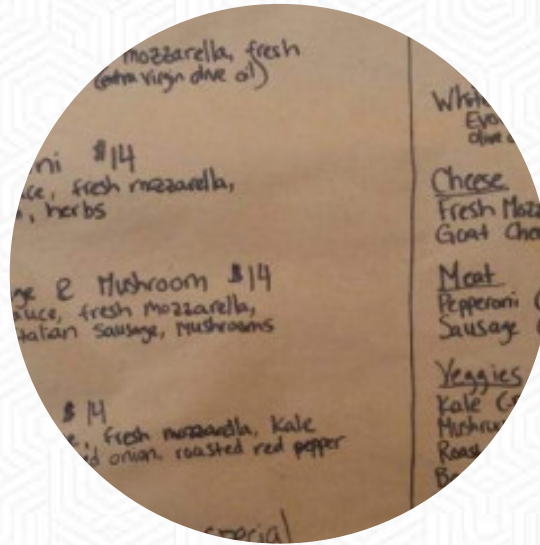 mozzarella, fresh
(extra virgin olive oil)
ni $14
ce, fresh mozzarella,
, herbs
ge & Mushroom $14
auce, fresh mozzarella,
talian Sausage, Mushrooms
$14
e, fresh mozzarella, Kale
d onion, roasted red pepper
special
Evo
olive
Cheese
Fresh Mozz
Goat Chee
Meat
Pepperoni (
Sausage (
Veggies
Kale (
Mushru
Roast